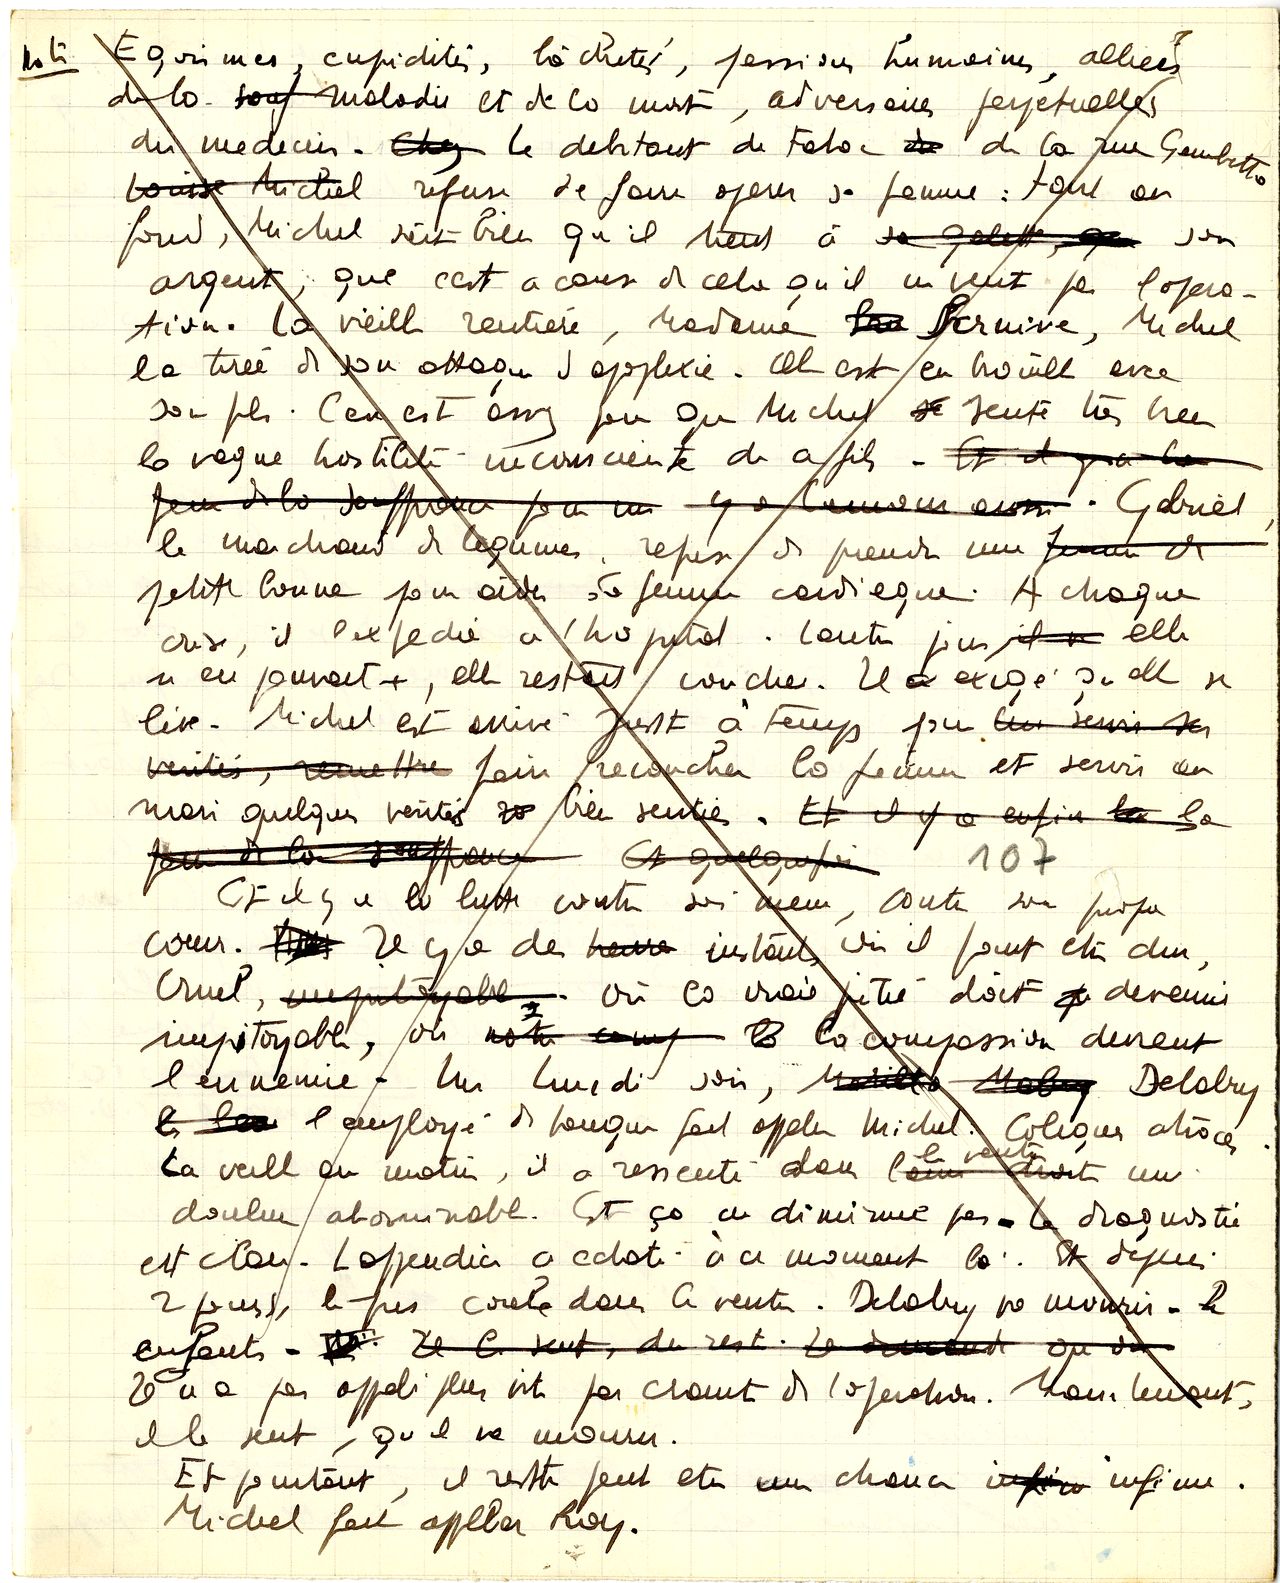 Egoïsmes, cupidités, lâchetés, passions humaines, alliées
de la souf maladie et de la mort, adversaires perpetuelles
du medecin. Chez le debitant de tabac de de la rue Gambetta
Louise Michel refuse de faire operer sa femme : tout au
fond, Michel sent bien qu'il tient à sa galette, que son
argent, que cest a cause de cela qu'il ne veut pas lopera-
tion. La vieille rentière, Madame Pernive, Michel
la tirée de son attaque d'apoplexie. Elle est en brouille avec
son fils. Cen est assez pour que Michel se sente très bien
la vague hostilité inconsciente de ce fils. Et il y a la
peur de la souffrance pour un y a l'amour aussi. Gabriel,
le marchand de légumes, refuse de prendre une femme de
petite bonne pour aider sa femme cardiaque. A chaque
crise, il l'expedie a l'hopital. Lautre jour, il a elle
n en pouvait +, elle restait couchée. Il a exigé qu elle se
lève. Michel est arrivé juste à temps pour lui servir ses
verités, remettre faire recoucher la femme et servir au
mari quelques verités bien senties. Et il y a enfin la
peur de la souffrance Et quelquefois 107
Et il y a la lutte contre soi meme, contre son propre
cœur. Il y a des heures instants où il faut etre dur,
cruel, impitoyable. où la vraie pitié doit devenir
impitoyable, où notre comp la compassion devient
l'ennemie. Un lundi soir, Delabry
l'employé de banque fait appeler Michel. Coliques atroces.
La veille au matin, il a ressenti dans le ventre une
douleur abominable. Et ça ne diminue pas. Le diagnostic
est clair. Lappendice a eclaté à ce moment là. Et depuis
2 jours, le pus coule dans le ventre. Delabry va mourir.
enfants. Il le sent, du reste.
Il n a pas appelé plus vite par crainte de l'operation. Maintenant,
il le sent, qu il va mourir.
Et pourtant, il reste peut etre une chance infime infime.
Michel fait appeler Roy.